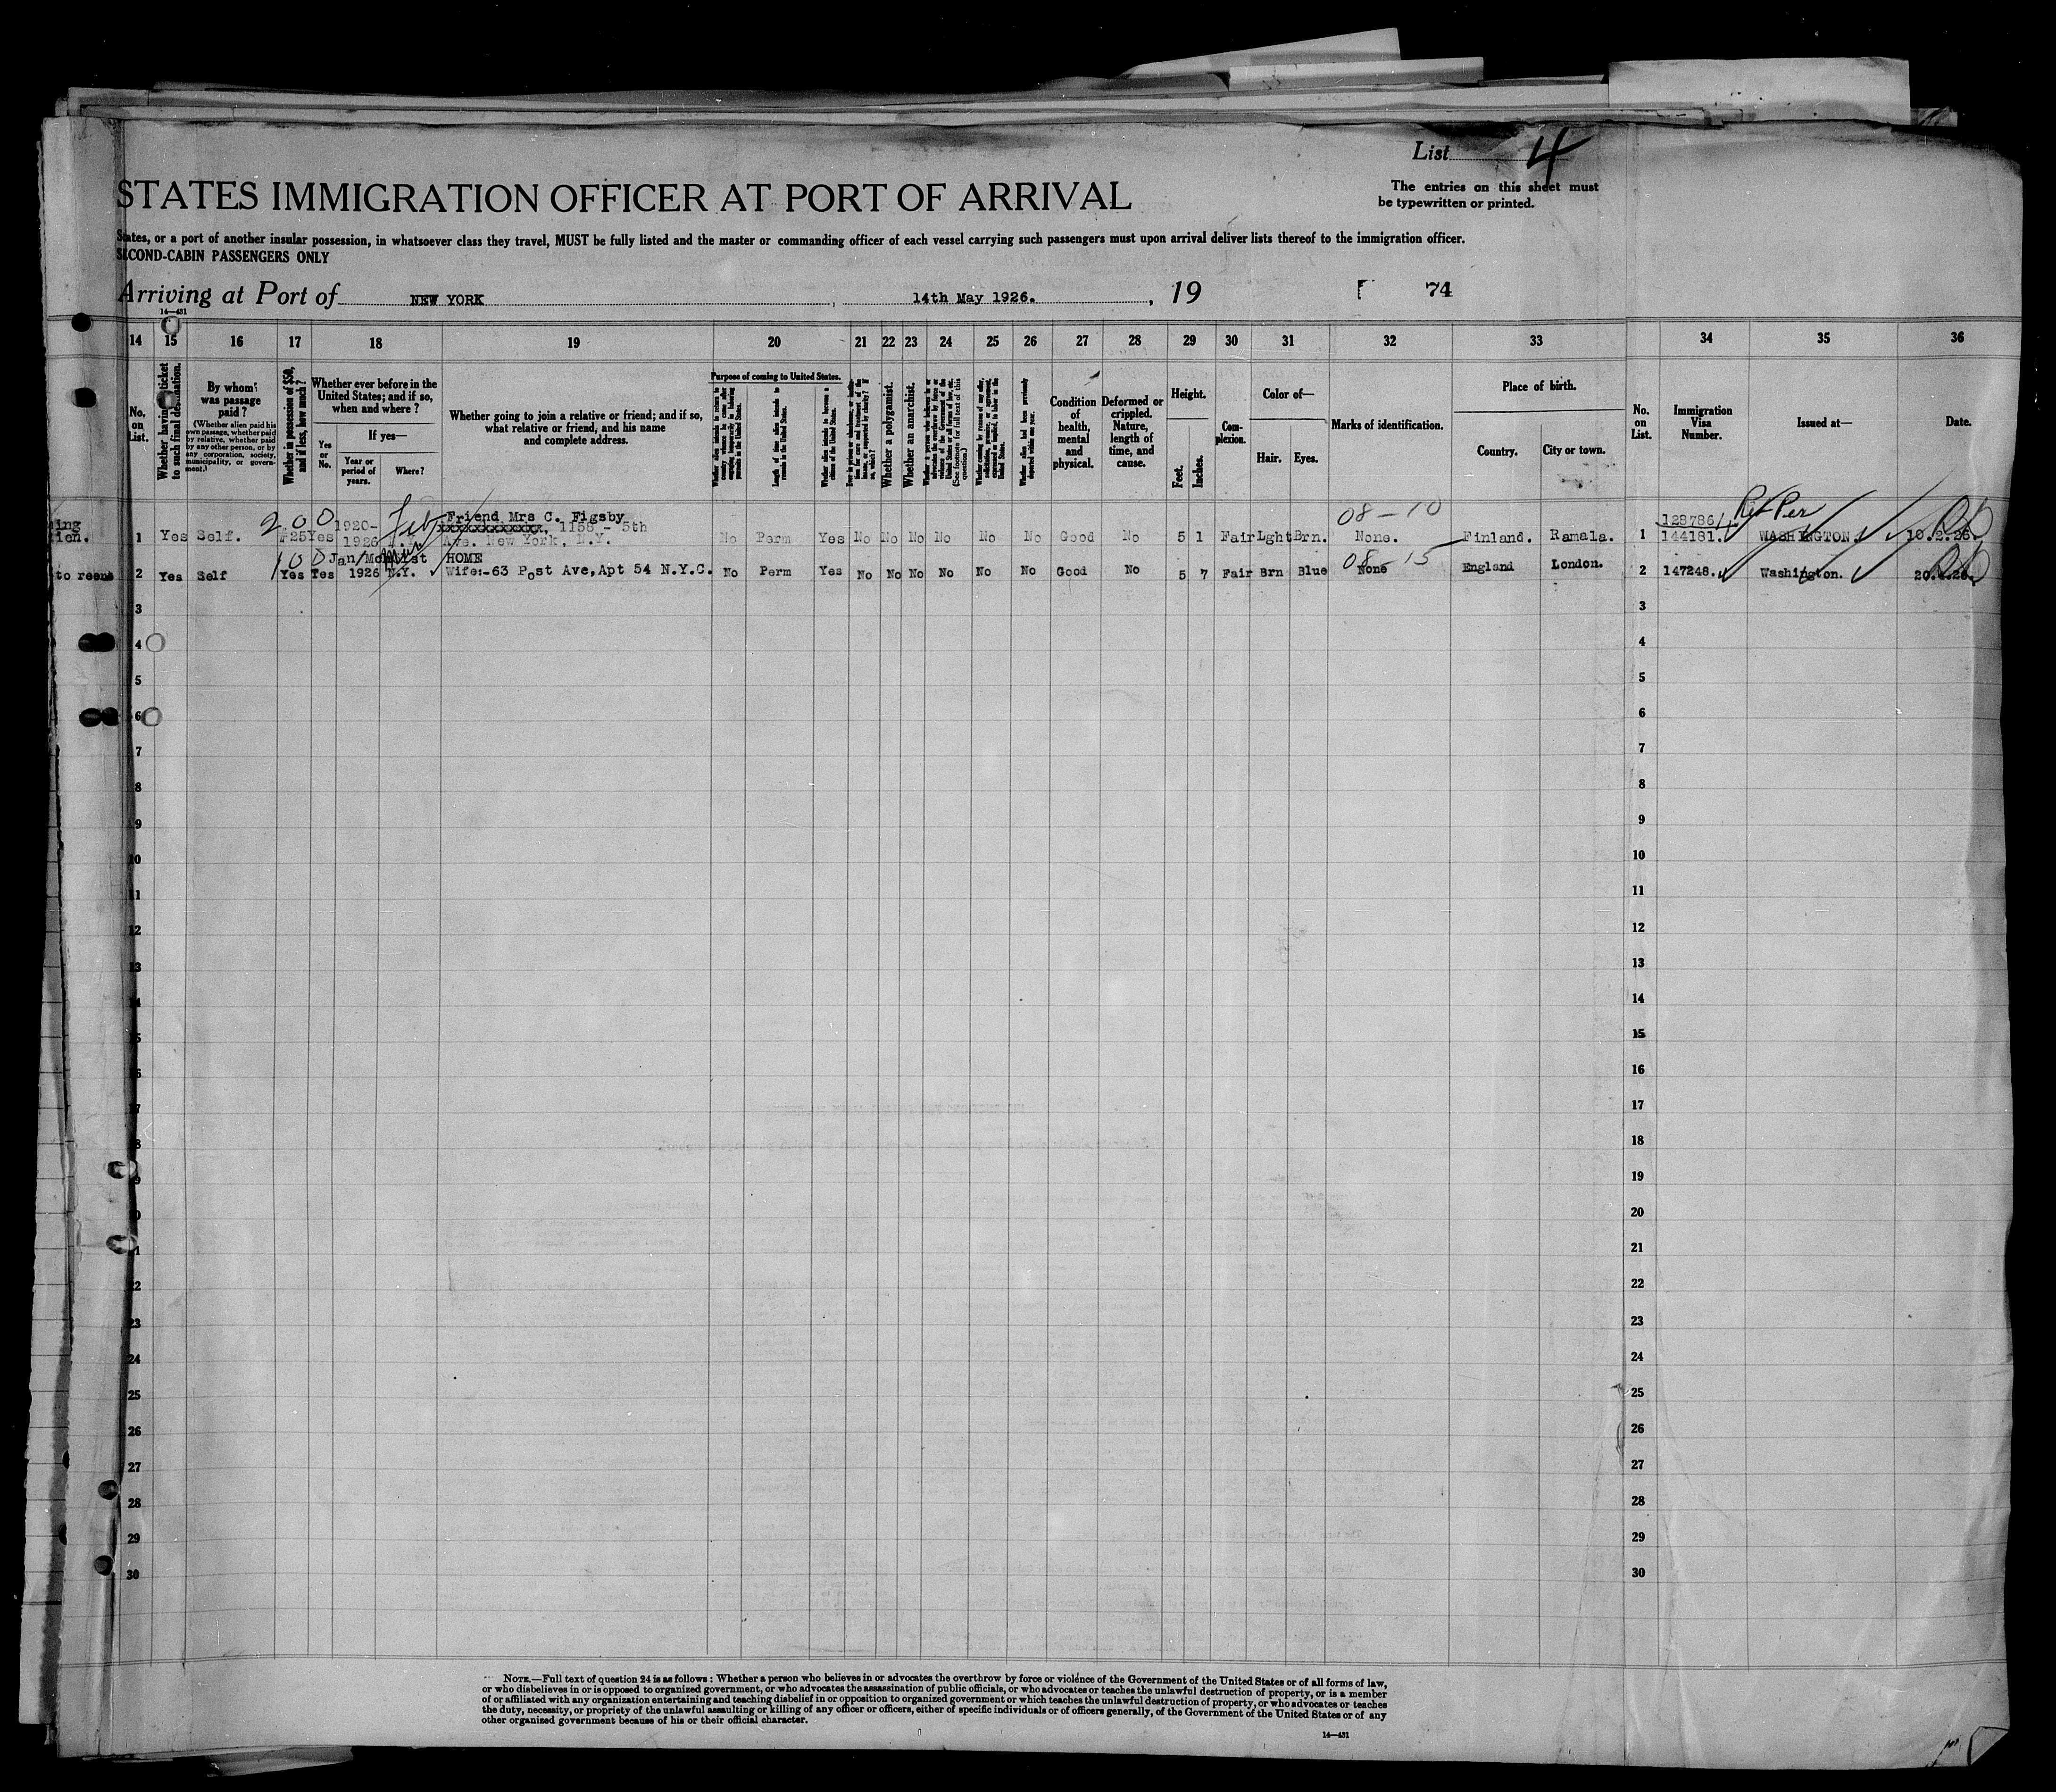 List 4
STATES IMMIGRATION OFFICER AT PORT OF ARRIVAL
The entries on this sheet must
be typewritten or printed.
States, or a port of another insular possession, in whatsoever class they travel, MUST be fully listed and the master or commanding officer of each vessel carrying such passengers must upon arrival deliver lists thereof to the immigration officer.
SECOND-CABIN PASSENGERS ONLY
Arriving at Port of NEW YORK, 14th May 1926., 19 74
14—431
14 15 16 17 18 19 20 21 22 23 24 25 26 27 28 29 30 31 32 33 34 35 36
No. on List.
Whether having ticket to such final destination.
By whom was passage paid?
(Whether alien paid his own passage, whether paid by relative, whether paid by any other person, or by any corporation, society, municipality, or government.)
Whether in possession of $50, and if less, how much?
Whether ever before in the United States; and if so, when and where?
Yes or No.
If yes—
Year or period of years.
Where?
Whether going to join a relative or friend; and if so, what relative or friend, and his name and complete address.
Purpose of coming to United States.
Whether alien intends to return to country whence he came after engaging temporarily in laboring pursuits in the United States.
Length of time alien intends to remain in the United States.
Whether alien intends to become a citizen of the United States.
Whether a polygamist.
Whether an anarchist.
(See footnote for full text of this question.)
Whether alien had been previously deported within one year.
Condition of health, mental and physical.
Deformed or crippled. Nature, length of time, and cause.
Height.
Feet. Inches.
Complexion.
Color of—
Hair. Eyes.
Marks of identification.
Place of birth.
Country. City or town.
No. on List.
Immigration Visa Number.
Issued at—
Date.
200 Feb Friend Mrs C. Figsby 08-10 128786 Ret Per
1920- xxxxxxxxxxxx, 1158 - 5th
1 Yes Self. $25 Yes 1926 N.Y. Ave. New York, N.Y. No Perm Yes No No No No No No Good No 5 1 Fair Lght Brn. None. Finland. Ramala. 1 144181. WASHINGTON. 10.2.26.
to reens 100 Jan/ HOME 08-15
2 Yes Self Yes Yes 1926 N.Y. Wife:-63 Post Ave,Apt 54 N.Y.C. No Perm Yes No No No No No No Good No 5 7 Fair Brn Blue None England London. 2 147248. Washington.
3 3
4 4
5 5
6 6
7 7
8 8
9 9
10 10
11 11
12 12
13 13
14 14
15 15
16 16
17 17
18 18
19 19
20 20
21 21
22 22
23 23
24 24
25 25
26 26
27 27
28 28
29 29
30 30
NOTE.—Full text of question 24 is as follows: Whether a person who believes in or advocates the overthrow by force or violence of the Government of the United States or of all forms of law,
or who disbelieves in or is opposed to organized government, or who advocates the assassination of public officials, or who advocates or teaches the unlawful destruction of property, or is a member
of or affiliated with any organization entertaining and teaching disbelief in or opposition to organized government or which teaches the unlawful destruction of property, or who advocates or teaches
the duty, necessity, or propriety of the unlawful assaulting or killing of any officer or officers, either of specific individuals or of officers generally, of the Government of the United States or of any
other organized government because of his or their official character.
14—431